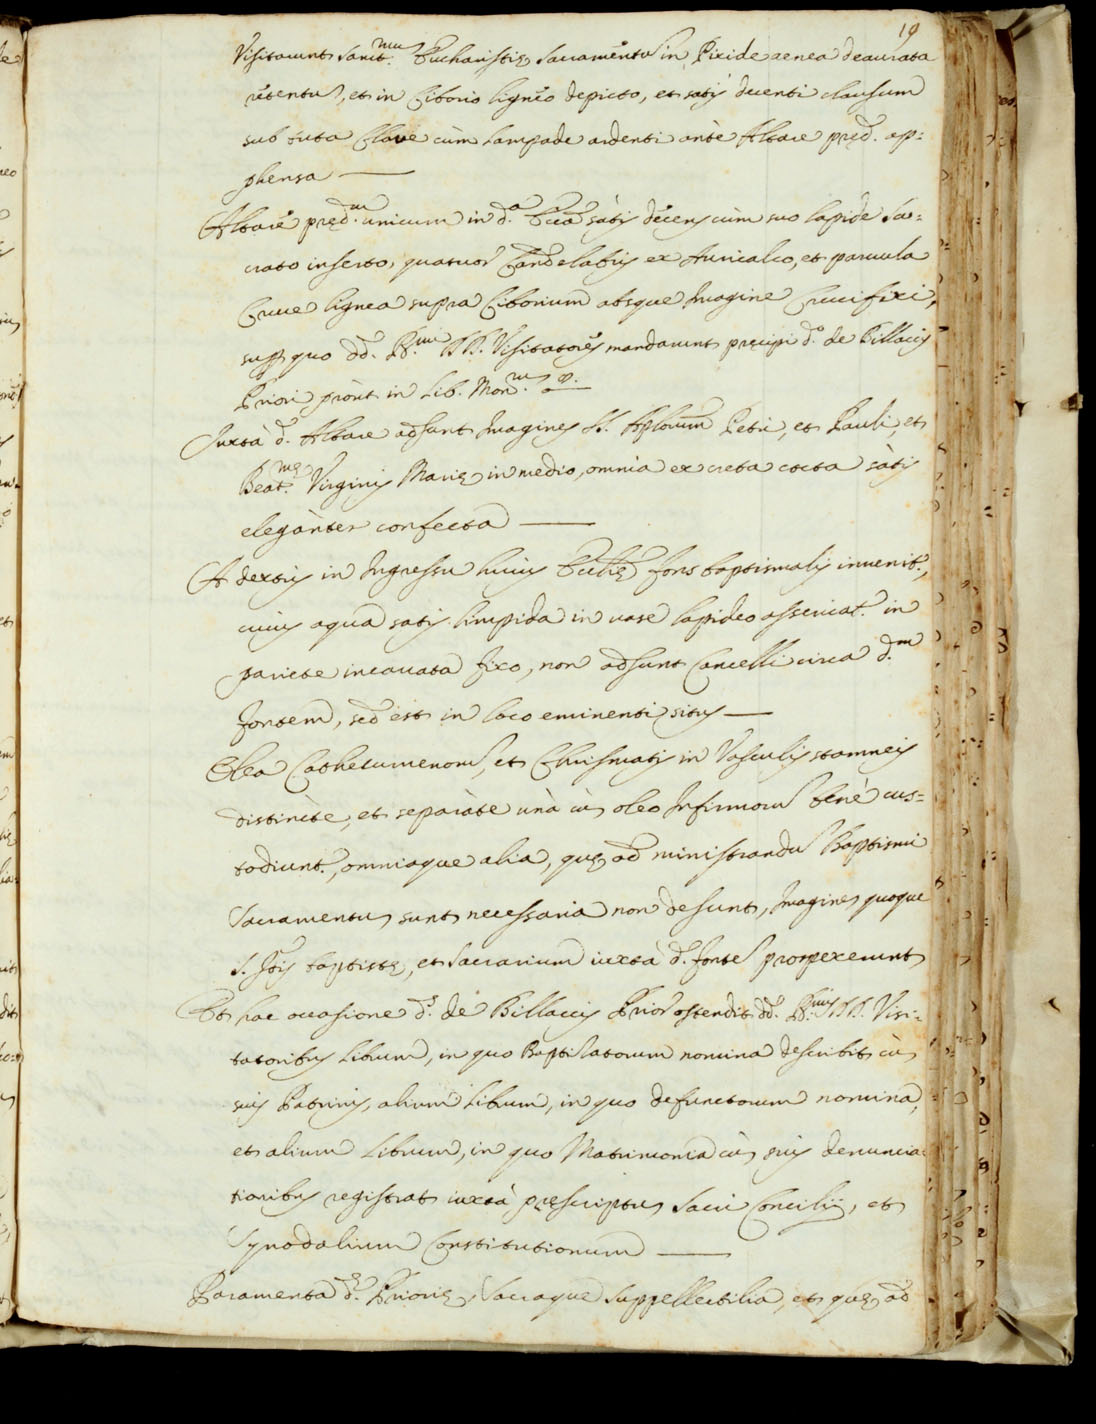 19
Visitarunt Sanct.mu Eucharistię Sacramentu in Pixide aenea deaurata
retentu, et in Ciborio ligneo depicto, et satis decenti clausum
sub tuta Clave cùm Lampade ardenti ante Altare pręd. ap=
phensa
Altare pręd.m unicum in d.a Eccla sàtis decens cùm suo lapide Sa=
crato inserto, quatuor Candelabris ex Auricalco, et parvula
Cruce lignea supra Ciborium absque Imagine Crucifixi,
sup quo dd. R.mi DD. Visitatores mandarunt pręcipi d.o de Billaccis
Priori proùt in Lib. Mon.m
Juxtà d. Altare adsunt Imagines SS. Aplorum Petri, et Pauli, et
Beat.mę Virginis Marię in medio, omnia ex creta cocta sàtis
elegànter confecta
A dextris in Ingressu huius Ecclię fons baptismalis invenit.,
cuius aqua satis limpida in vase lapideo asservat. in
pariete incavata fixo, non adsunt Cancelli circa d.m
fontem, sed est in loco eminenti situs
Olea Cathecumenoru, et Chrismatis in Vasculis stamneis
distinctè, et separàte unà cù oleo Infirmoru benè cus=
todiunt., omniaque alia, quę ad ministrandu Baptismi
Sacramentu sunt necessaria non desunt, Imagines quoque
S. Jois baptistę, et Sacrarium iuxtà d. fonte prospexerunt
Et hac occasione d. de Billaccis Prior ostendit dd. R.mis DD. Visi=
tatoribus Librum, in quo Baptizatorum nomina describit cù
suis Patrinis, alium Librum, in quo defunctorum nomina,
et alium Librum, in quo Matrimonia cù suis denuncia=
tionibus registrat iuxtà pręscriptu Sacri Concilij, et
Synodalium Constitutionum
Paramenta d.ę Priorię, Sacraque Suppellectilia, et quę ad